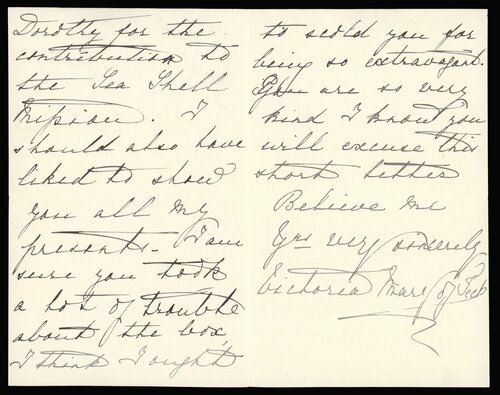 Dorothy for the
contribution to
the Sea Shell
Mission. I
should also have
liked to show
you all my
presents. I am
sure you took
a lot of trouble
about the box
I think I ought
to scold you for
being so extravagant.
You are so very
kind I know you
will excuse this
short letter
Believe me
Yrs very sincerely
Victoria Mary of Teck